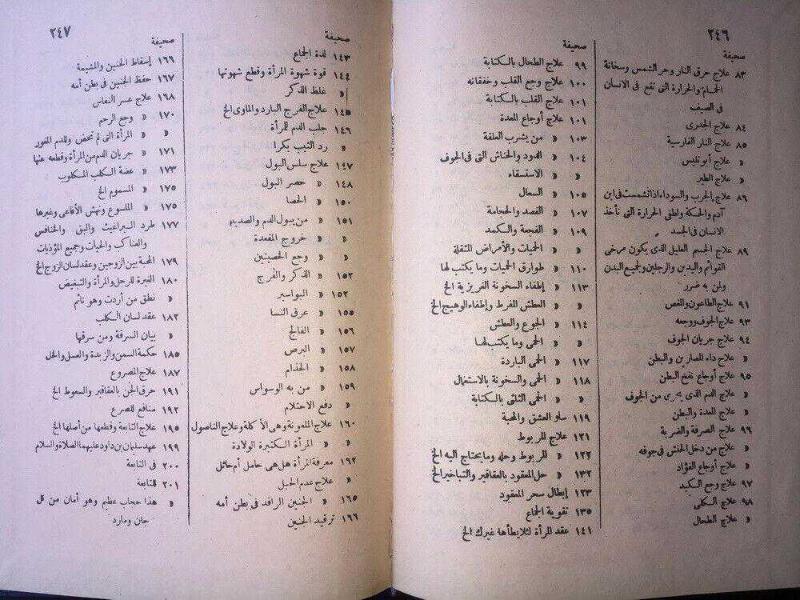 ٢٤٦
صحيفة
٨٣ علاج حرق النار وحر الشمس وسخانة
الحمام والحرارة التى تقع فى الانسان
فى الصيف
٨٤ علاج الجدرى
٨٥ علاج النار الفارسية
« علاج أبو تليس
« علاج الطير
٨٦ علاج الجرب والسوداء اذا تشمست فى ابن
آدم والحكة ولطفى الحرارة التى تأخذ
الانسان فى الجسد
٨٩ علاج الجسم العليل الذى يكون مرخى
القوائم واليدين والرجلين وجميع البدن
ولمن به ضرر
٩١ علاج الطاعون والمغص
٩٣ علاج الجوف ووجعه
٩٤ علاج جريان الجوف
« علاج داء المصارين والبطن
٩٥ علاج أوجاع نفخ البطن
« علاج الدم الذى يجرى من الجوف
« علاج المعدة والبطن
٩٦ علاج الصرفة والضربة
« علاج من دخل الحنش فى جوفه
« علاج أوجاع الفؤاد
٩٧ علاج وجع الكبد
٩٨ علاج الكلى
« علاج الطحال
صحيفة
٩٩ علاج الطحال بالكتابة
١٠٠ علاج وجع القلب وخفقانه
١٠١ علاج القلب بالكتابة
١٠١ علاج أوجاع المعدة
١٠٣ « من يشرب العلقة
١٠٤ « الدود والحناش التى فى الجوف
« « الاستسقاء
١٠٥ « السعال
١٠٧ « الفصد والحجامة
١٠٩ « الفجعة والكمد
« « الحميات والأمراض المثقلة
١١٠ « طوارق الحميات وما يكتب لها
١١٣ « إطفاء السخونة الغريزية الخ
« « العطش المفرط وإطفاء الوهيج الخ
١١٤ « الجوع والعطش
« « الحمى وما يكتب لها
١١٧ « الحمى الباردة
١١٨ « الحمى والسخونة بالاستعمال
« « الحمى الثالثى بالكتابة
١١٩ سلو العشق والمحبة
١٢١ علاج المربوط
١٢٢ « المربوط وحله وما يحتاج اليه الخ
١٣٢ « حل المعقود بالعقاقير والتباخير الخ
١٢٣ إبطال سحر المعقود
١٣٥ تقوية الجماع
١٤١ عقد المرأة لئلا يطأها غيرك الخ
٢٤٧
صحيفة
١٤٣ لذة الجماع
١٤٤ قوة شهوة المرأة وقطع شهوتها
« غلظ الذكر
١٤٥ علاج الفرج البارد والماوى الخ
١٤٦ جلب الدم للمرأة
« رد الثيب بكرا
١٤٧ علاج سلس البول
١٤٨ « حصر البول
١٥٠ « الحصا
١٥١ « من يبول الدم والصديد
« « خروج المقعدة
« « وجع الحصيتين
١٥٢ « الذكر والفرج
١٥٢ « البواسير
١٥٥ « عرق النسا
١٥٦ « الفالج
١٥٧ « البرص
١٥٨ « الجذام
١٥٩ « من به الوسواس
« دفع الاحتلام
١٦٠ علاج الملعونة وهى الأكلة وعلاج الناصول
« « المرأة الكثيرة الولادة
١٦٢ معرفة المرأة هل هى حامل أم حائل
« علاج عدم الحبل
١٦٥ « الجنين الراقد فى بطن أمه
١٦٦ ترقيد الجنين
صحيفة
١٦٦ إسقاط الجنين والمشيمة
١٦٧ حفظ الجنين فى بطن أمه
١٦٨ علاج عسر النفاس
١٧٠ « وجع الرحم
« « المرأة التى لم تحض والدم المغور
١٧١ « جريان الدم من المرأة وقطعه عنها
١٧٣ « عضة الكلب المكلوب
١٧٥ « المسموم الخ
١٧٥ « الملسوع ونهش الأفاعى وغيرها
١٧٧ طرد البراغيث والبق والخنافس
والعناكب والحيات وجميع المؤذيات
١٧٩ المحبة بين الزوجين وعقد لسان الزوج الخ
١٨٠ الغيرة للرجل والمرأة والتبغيض
« نطق من أردت وهو نائم
١٨٢ عقد لسان الكلب
« بيان السرقة ومن سرقها
١٨٥ حكمة السمن والزبدة والعسل والخل
١٨٧ علاج المصروع
١٩١ حرق الجن بالعقاقير والسعوط الخ
١٩٢ منافع للصرع
١٩٥ علاج التابعة وقطعها من أصلها الخ
١٩٩ عهد سليمان بن داود عليهما الصلاة والسلام
٢٠٠ فى التابعة
٢٠١ للتابعة
« هذا حجاب عظيم وهو أمان من كل
جان ومارد